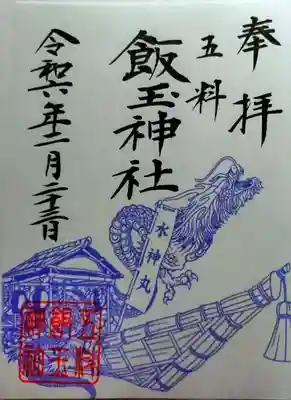 奉拝
五料
飯玉神社
令和六年十一月二十三日
水神丸
五料
飯玉
神社